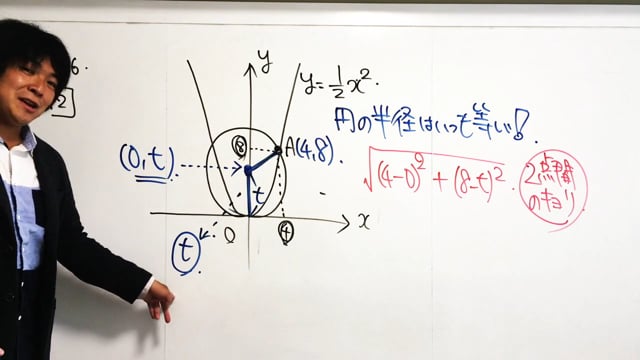 6.
2
y
y=1/2x².
円の半径はいつも等しい!
8
A(4,8).
(0,t)
√(4-0)²+(8-t)².
2点間
のキョリ
t
x
0
4
t.